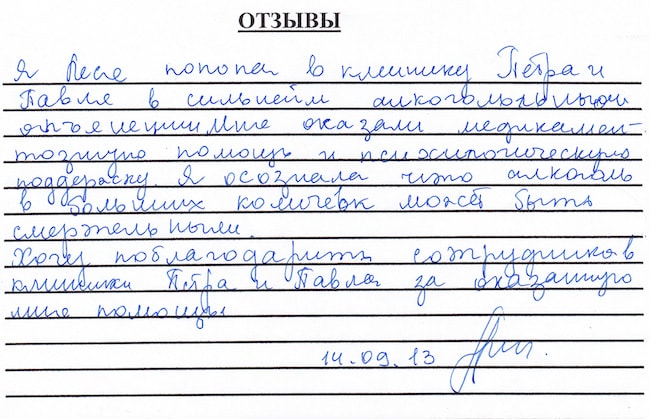 ОТЗЫВЫ
Я попопал в клинику Петра и
Павла в сильнейм алкогольным
опъянеции Мне оказали медикамен-
тозную помощь и психилогическую
поддержку. Я осознала что алкоголь
в больших количевк может быть
смертельным.
Хочу поблагодарить сотрудников
клиники Петра и Павла за оказанную
мне помощь
14.09.13